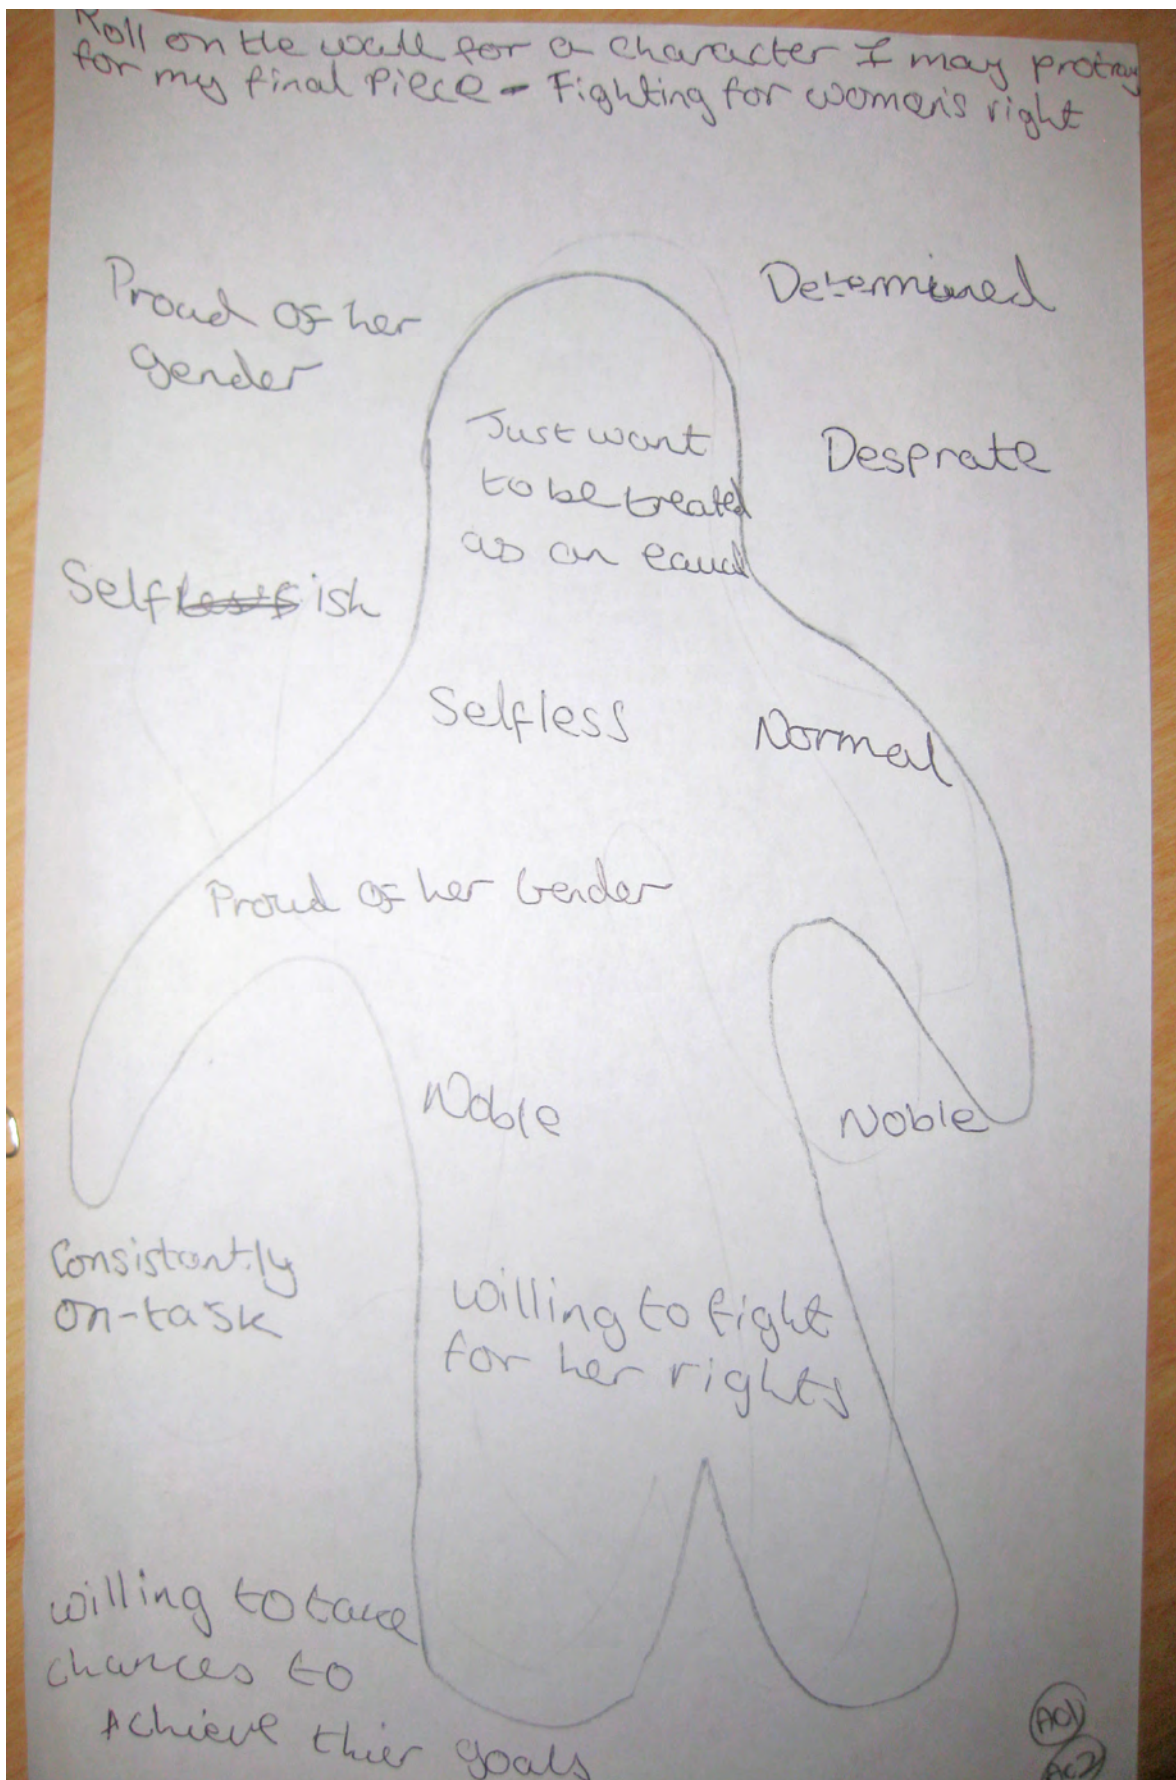 Roll on the wall for a character I may protray
for my final Piece - Fighting for women's right
Proud of her
gender
Determined
Just want
to be treated
as an equal
Desprate
Selflessish
Selfless
Normal
Proud of her Gender
Noble
Noble
Consistantly
on-task
willing to fight
for her rights
willing to take
chances to
Achieve thier goals
AO1
AO2